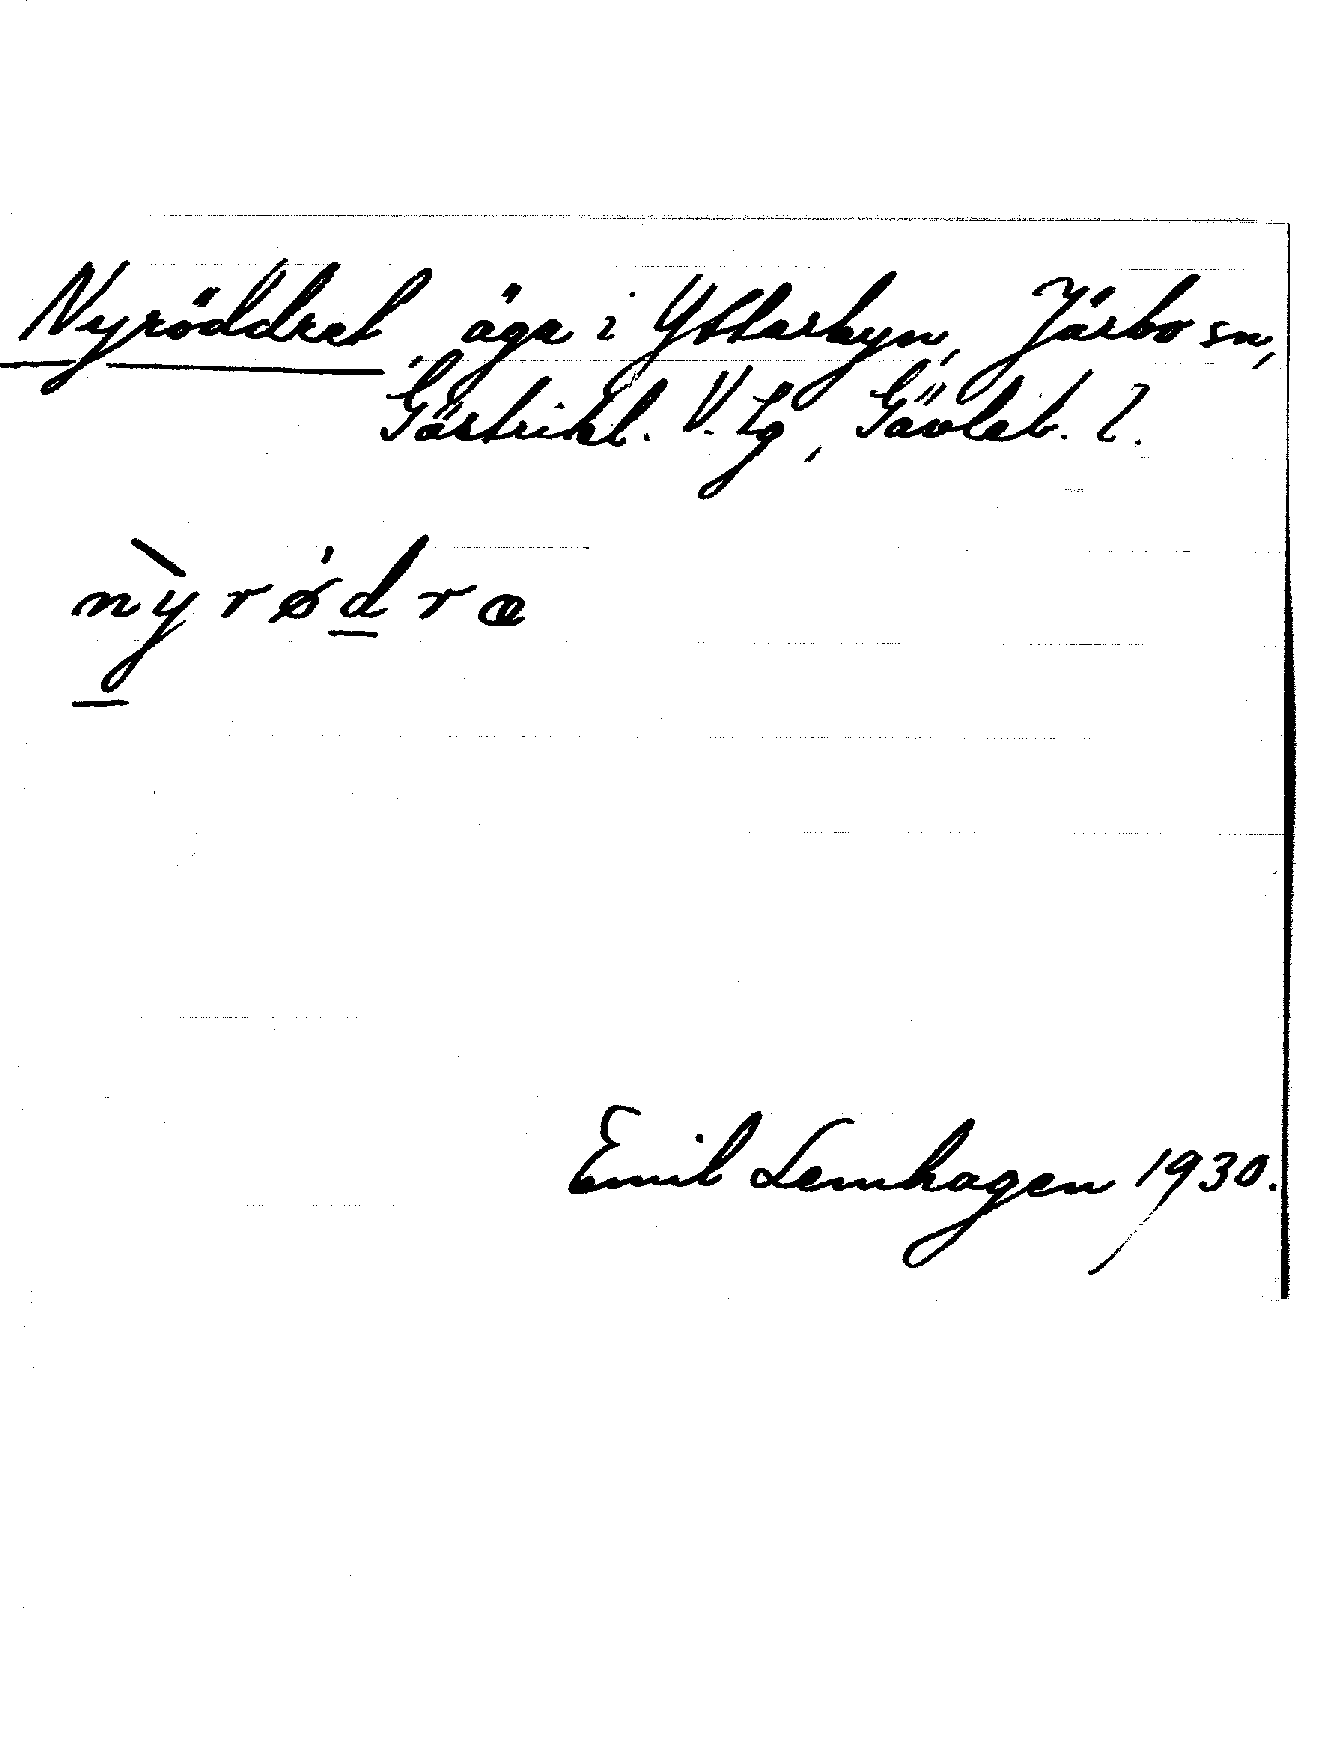 Nyröddret, äga i Ytterbyn, Järbo sn,
Gästrikl. V. tg, Gävleb. l.
nỳ̠rø̍d̠ræ
Emil Lemhagen 1930.